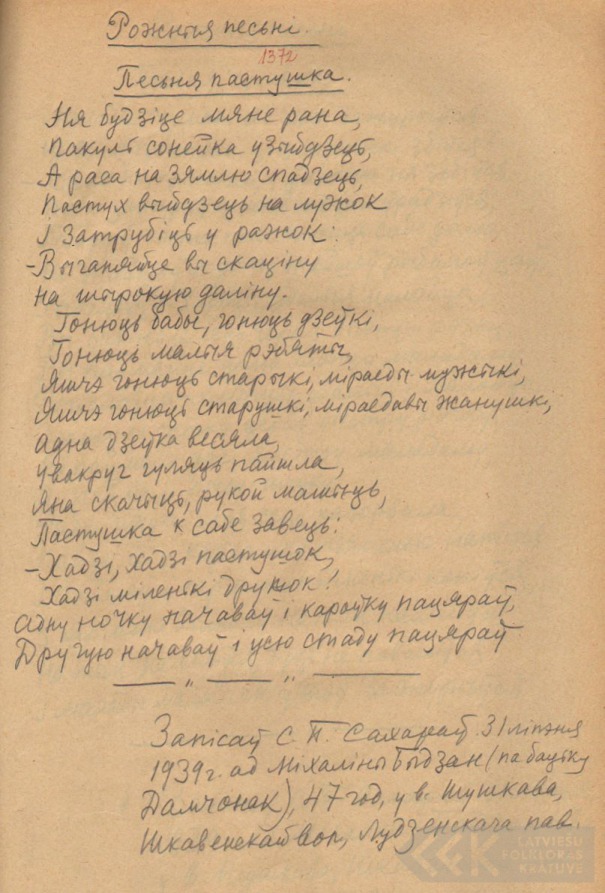 Рожныя песьні.
1372
Песьня пастушка.
Ня будзіце мяне рана,
Пакуль сонейка узыйдзець,
А раса на зямлю спадзець,
Пастух выйдзець на лужок
І затрубіць у ражок:
–Выганяйце вы скаціну
на шырокую даліну.
Гонюць бабы, гонюць дзеўкі,
Гонюць малыя рэбяты,
Яшчэ гонюць старыкі, міраеды мужыкі,
Яшчэ гонюць старушкі, міраедавы жанушкі,
Адна дзеўка весяла,
увакруг гуляць пайшла,
Яна скачыць, рукой машыць,
Пастушка к сабе завець:
–Хадзі, хадзі пастушок,
Хадзі міленькі дружок!
Адну ночку начаваў і кароўку пацяраў,
Другую начаваў і усю стаду пацяраў
— „ — „ —
Запісаў С. П. Сахараў 31 ліпэня
1939 г. ад Міхаліны Быдзан (па бацьку
Дамчонак), 47 год, у в. Шушкава,
Шкавенскай вол, Лудзенскага пав.
LATVIEŠU
FOLKLORAS
KRĀTUVE